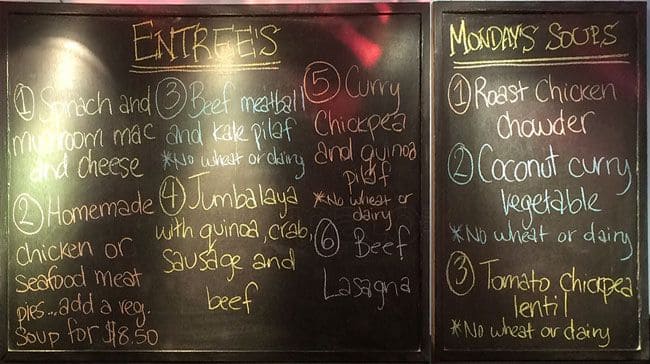 ENTREE'S
① Spinach and
mushroom mac
and cheese
② Homemade
chicken or
seafood meat
pies...add a reg.
soup for $18.50
③ Beef meatball
and kale pilaf
*No wheat or dairy
④ Jumbalaya
with quinoa, crab,
sausage and
beef
⑤ Curry
Chickpea
and quinoa
pilaf
*No wheat or
dairy
⑥ Beef
Lasagna
MONDAY'S SOUPS
① Roast Chicken
chowder
② Coconut curry
vegetable
*No wheat or dairy
③ Tomato chickpea
lentil
*No wheat or dairy